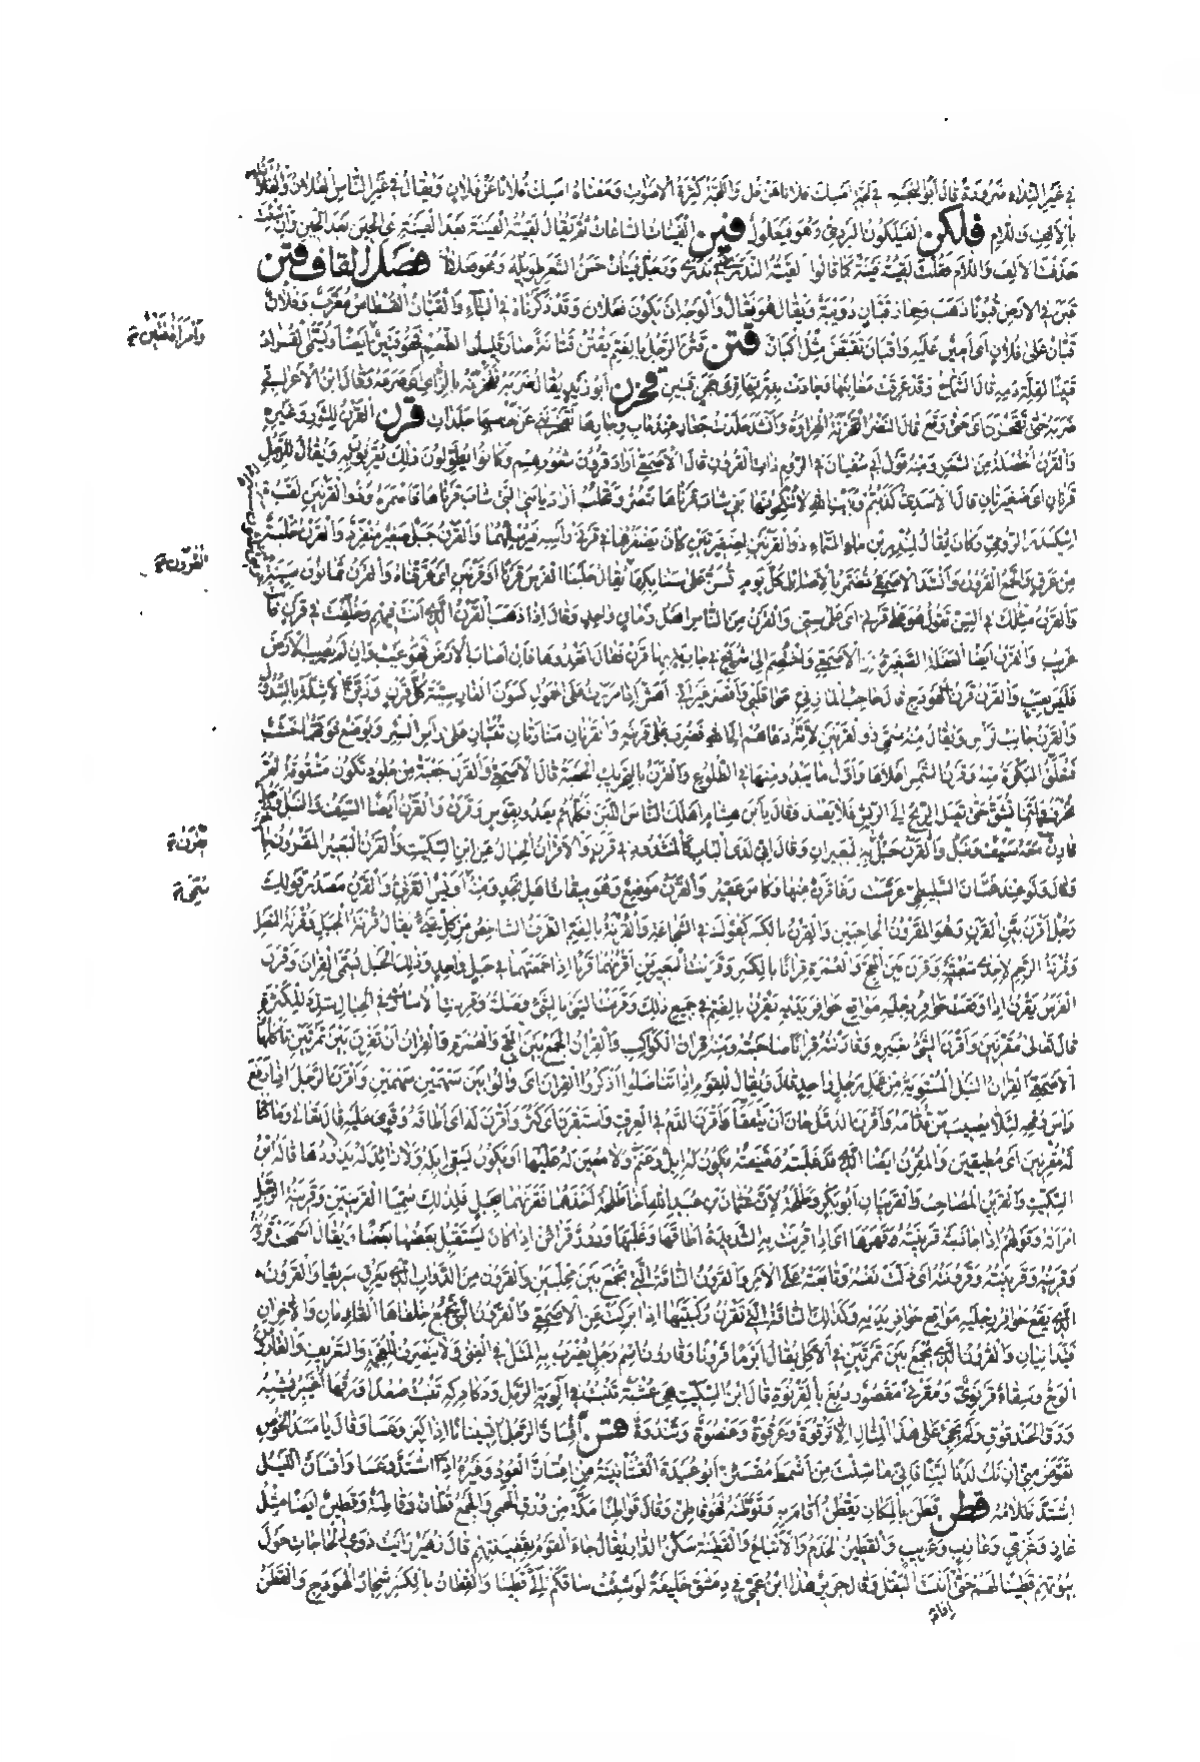 في غير النداء ضرورة قال أبو النجم في لجة أمسك فلانا عن فل واللجة كثرة الأصوات ومعناه أمسك فلانا عن فلان ويقال في غير الناس الفلان والفلانة
بالألف واللام فلكن الفيلكون البردي وهو فيعلول فين الفينات الساعات ثم يقال لقيته الفينة بعد الفينة أي الحين بعد الحين وإن شئت
حذفت الألف واللام فقلت لقيته فينة كما قالوا لقيته الندرى وفي ندرى ورجل فينان حسن الشعر طويله وهو فصل القاف قبن
قبن في الأرض قبونا ذهب وحمار قبان دويبة ويقال هو فعال والوجه أن يكون فعلان وقد ذكرناه في الباء والقبان القسطاس معرب وفلان
قبان على فلان أي أمين عليه واقبأن تقبض مثل اكبأن قتن قتن الرجل بالضم يقتن قتانة صار قليل الطعم فهو قتين أيضا ويسمى القراد
قتينا لقلة دمه قال الشماخ وقد عرقت مغابنها وجادت بدرتها قرى حجن قتين قحزن أبو زيد يقال ضربه فقحزنه بالزاي أي صرعه وقال ابن الأعرابي
ضربه حتى تقحزن أي حتى وقع قال النضر القحزنة الهراوة وأنشد جلدت جعار عند باب وجارها بقحزنتي عن جنبها جلدات قرن القرن للثور وغيره
والقرن الخصلة من الشعر ومنه قول أبي سفيان في الروم ذات القرون قال الأصمعي أراد قرون شعورهم وكانوا يطولون ذلك يعرفون به ويقال للرجل
قرنان أي ضفيرتان قال الأسدي كذبتم وبيت الله لا تنكحونها بني شاب قرناها تصر وتحلب أراد يا بني التي شاب قرناها فأضمره وذو القرنين لقب
إسكندر الرومي وكان يقال للمنذر بن ماء السماء ذو القرنين لضفيرتين كان يضفرهما في قرني رأسه فيرسلهما والقرن جبل صغير منفرد والقرن حلبة
من عرق والجمع القرون وأنشد الأصمعي تضمر بالأصائل كل يوم تسن على سنابكها يقال حلبنا الفرس قرنا أو قرنين أي عرقناه والقرن ثمانون سنة
والقرن مثلك في السن تقول هو على قرني أي على سني والقرن من الناس أهل زمان واحد وقال إذا ذهب القرن الذي أنت فيهم وخلفت في قرن فأنت
غريب والقرن أيضا العفلة الصغيرة عن الأصمعي واختصم إلى شريح في جارية بها قرن فقال أقعدوها فإن أصاب الأرض فهو عيب وإن لم يصب الأرض
فليس بعيب والقرن قرن الهودج قال حاجب المازني صحا قلبي وأقصر غير أني أهش إذا مررت على الحمول كسون الفارسية كل قرن وزين الأشلة بالسدول
والقرن جانب الرأس ويقال منه سمي ذو القرنين لأنه دعا قومه إلى الله فضربوه على قرنيه والقرنان منارتان تبنيان على رأس البئر ويوضع فوقهما الخشب
فتعلق البكرة منه وقرن الشمس أعلاها وأول ما يبدو منها في الطلوع والقرن بالتحريك الجعبة قال الأصمعي والقرن جعبة من جلود تكون مشقوقة ثم
تخرز وإنما تشق حتى تصل الريح إلى الريش فلا يفسد وقال يابن هشام أهلك الناس اللبن فكلهم يعدو بقوس وقرن والقرن أيضا السيف والنبل ورجل
قارن معه سيف ونبل والقرن حبل يقرن به البعيران وقال أني لدى الباب كالمشدود في قرن والأقران الحبال عن ابن السكيت والقرن البعير المقرون بآخر
وقال ولو عند غسان السليطي عرست رغا قرن منها وكاس عقير والقرن موضع وهو ميقات أهل نجد ومنه أويس القرني والقرن مصدر قولك
رجل أقرن بين القرن وهو المقرون الحاجبين والقرن بالكسر كفؤك في الشجاعة والقرنة بالضم الطرف الشاخص من كل شيء يقال قرنة الجبل وقرنة النصل
وقرنة الرحم لإحدى شعبتيه وقرن بين الحج والعمرة قرانا بالكسر وقرنت البعيرين أقرنهما قرنا إذا جمعتهما في حبل واحد وذلك الحبل يسمى القران وقرن
الفرس يقرن إذا وقعت حوافر رجليه مواقع حوافر يديه يقرن بالضم في جميع ذلك وقرنت الشيء بالشيء وصلته وقرنت الأسارى في الحبال شدد للكثرة
قال تعالى مقرنين واقترن الشيء بغيره وقارنته قرانا صاحبته ومنه قران الكواكب والقران الجمع بين الحج والعمرة والقران أن تقرن بين تمرتين تأكلهما
الأصمعي القران النبل المستوية من عمل رجل واحد قال ويقال للقوم إذا تناضلوا اذكروا القران أي والوا بين سهمين سهمين وأقرن الرجل إذا رفع
رأس رمحه لئلا يصيب من قدامه وأقرن الدمل حان أن يتفقأ وأقرن الدم في العرق واستقرن أي كثر وأقرن له أي أطاقه وقوي عليه قال تعالى وما كنا
له مقرنين أي مطيقين والمقرن أيضا الذي قد غلبته ضيعته تكون له إبل وغنم ولا معين له عليها أو يكون يسقي إبله ولا ذائد له يذودها قاله ابن
السكيت والقرين المصاحب والقرينان أبو بكر وطلحة لأن عثمان بن عبيد الله أخا طلحة أخذهما فقرنهما بحبل فلذلك سميا القرينين وقرينة الرجل
امرأته وقولهم إذا جاذبته قرينته قهرها أي إذا قرنت به الشديدة أطاقها وغلبها ودور قرائن إذا كان يستقبل بعضها بعضا ويقال أسمحت قرونه
وقرينه وقرينته وقرونته أي ذلت نفسه وتابعته على الأمر والقرون الناقة التي تجمع بين محلبين والقرون من الدواب الذي يعرق سريعا والقرون
الذي يقع حوافر رجليه مواقع حوافر يديه وكذلك الناقة التي تقرن ركبتيها إذا بركت عن الأصمعي والقرون التي يجتمع خلفاها القادمان والآخران
فيتدانيان والقرون الذي يجمع بين تمرتين في الأكل يقال أبرما قرونا وقارون اسم رجل يضرب به المثل في الغنى ولا ينصرف للعجمة والتعريف والقارون
الوج وسقاء قرنوي ومقرنى مقصور دبغ بالقرنوة قال ابن السكيت هي عشبة تنبت في ألوية الرمل ودكادكه تنبت صعدا ورقها أغيبر يشبه
ورق الحندقوق ولم يجئ على هذا المثال إلا ترقوة وعرقوة وعنصوة وثندوة قسن اقسأن الرجل اقسئنانا إذا كبر وعسا وقال يا مسد الخوص
تعوذ مني إن تك لدنا لينا فإني ما شئت من أشمط مقسئن أبو عبيدة القسأنينة من اقسأن العود وغيره إذا اشتد وعسا واقسأن الليل
اشتد ظلامه قطن قطن بالمكان يقطن أقام به وتوطنه فهو قاطن وقال قواطنا مكة من ورق الحمي والجمع قطان وقاطنة وقطين أيضا مثل
غاز وغزي وعازب وعزيب والقطين الخدم والأتباع والقطنة سكن الدار يقال جاء القوم بقطينتهم قال زهير رأيت ذوي الحاجات حول
بيوتهم قطينا لهم حتى إذا أنبت البقل وقال جرير هذا ابن عمي في دمشق خليفة لو شئت ساقكم إلي قطينا والقطان بالكسر شجار الهودج والقطن
وامرأة قتين
القرون
إقامة